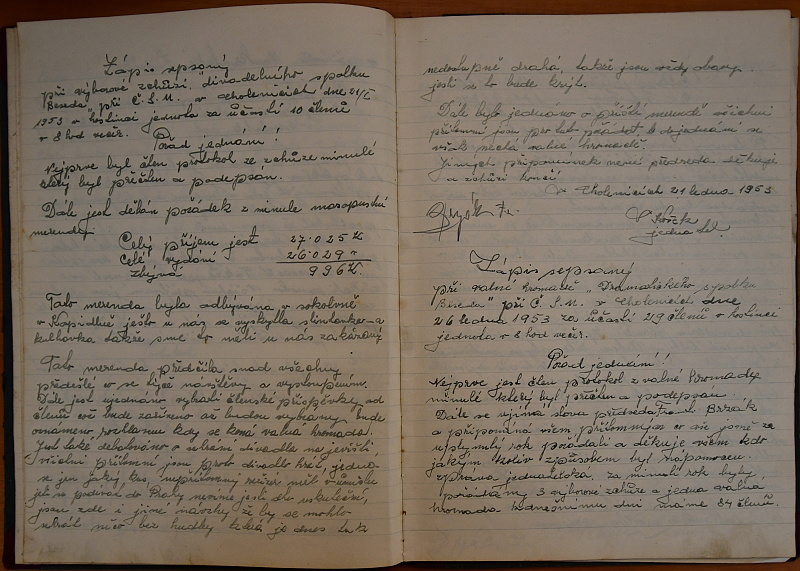 Zápis sepsaný
při výborové schůzi "divadelního spolku
Beseda" při Č.S.M. v Cholenicích dne 21/I
1953 v hostinci jednota za účasti 10 členů
v 8 hod večír.
Pořad jednání!
Nejprve byl čten protokol ze schůze minulé
který byl přečten a podepsán.
Dále jest dělán pořádek z minule masopustní
merendy.
Celý příjem jest 27.025 K
Celé vydání 26.029 "
zbývá 996 K.
Tato merenda byla odbývána v sokolovně
v Kopidlně ješto u nás se vyskytla slintavka a
kulhavka takže sme to měli u nás zakázaný
Tato merenda předčila snad všechny
předešlé co se týče návštěvy a vystoupením.
Dále jest ujednáno vybrati členské příspěvky od
členů což bude zařízeno až budou vybrany, bude
oznámeno rozhlasem kdy se koná valná hromada.
Jest také debatováno o sehrání divadla na jevišti
všichni přítomní jsou pro divadlo hrát, jedná
se jen jaký kus, nepřítomný režisér měl v úmyslu
jet se podívat do Prahy nevíme jestli dle uskuteční,
jsou zde i jiné návrhy že by se mohlo
sehrát něco bez hudby která je dnes tak
nedostupně drahá, takže jsou vždy obavy
jestli se to bude krýt.
Dále bylo jednáno o příští merendě všichni
přítomní jsou pro to pořádat k dojednání se
však nechá valné hromadě.
Jiných připomínek není předseda děkuje
a schůzi končí.
v Cholenicích 21 ledna 1953
Brzák Fr.
jednatel.
Zápis sepsaný
při valné hromadě "Dramatického spolku
Beseda" při Č.S.M. v Cholenicích dne
26 ledna 1953 za účasti 29 členů v hostinci
jednota v 8 hod večír.
Pořad jednání!!
Nejprve jest čten protokol z valné hromady
minulé který byl přečten a podepsán
Dále se ujímá slova předseda Fr. Brzák
a připomíná všem přítomným co vše jsme za
uplynulý rok pořádali a děkuje všem kdo
jakým koliv způsobem byl nápomocen.
Zpráva jednatelská, za minulí rok byly
pořádány 3 výborové schůze a jedna valná
hromada k dnešnímu dni máme 84 členů.